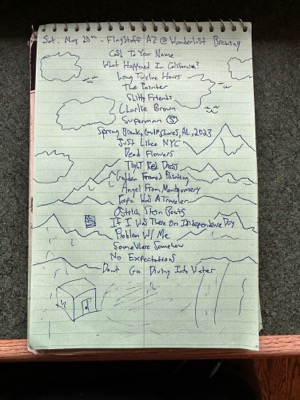 Sat. May 20th - Flagstaff AZ @ Wanderlust Brewing
Call To Your Name
What Happened In
Long Twelve Hours
The Painter
Shitty Friends
Charlie Brown
Superman Ⓢ
Spring Break, Gulf Shores, AL, 2023
Just Like NYC
Dead Flowers
Tight Red Dress
Golden Framed Painting
Angel From Montgomery
Papa Was A Traveler
If I Was There On Independence Day
Problem W/ Me
Somewhere Somehow
No Expectations
Don't Go Diving Into Water